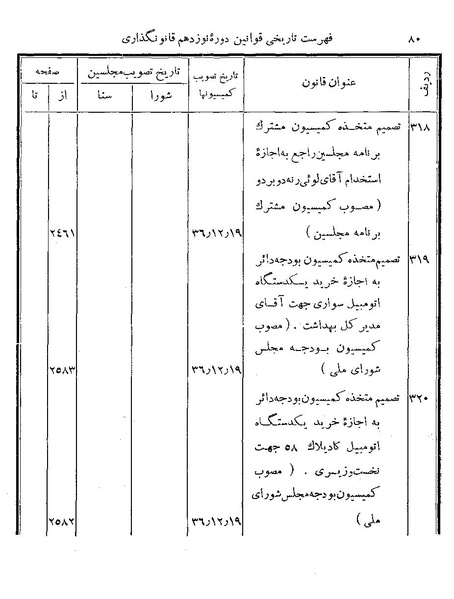 ۸۰
فهرست تاریخی قوانین دورهٔ نوزدهم قانونگذاری
ردیف
عنوان قانون
تاریخ تصویب
کمیسیونها
تاریخ تصویب مجلسین
شورا
سنا
صفحه
از
تا
۳۱۸
تصمیم متخذه کمیسیون مشترک
برنامه مجلسین راجع به اجازهٔ
استخدام آقای لوئی رنه دوبردو
( مصوب کمیسیون مشترک
برنامه مجلسین )
۳۶٫۱۲٫۱۹
۲٤۶۱
۳۱۹
تصمیم متخذه کمیسیون بودجه دائر
به اجازهٔ خرید یکدستگاه
اتومبیل سواری جهت آقای
مدیر کل بهداشت . ( مصوب
کمیسیون بودجه مجلس
شورای ملی )
۳۶٫۱۲٫۱۹
۲۵۸۳
۳۲۰
تصمیم متخذه کمیسیون بودجه دائر
به اجازهٔ خرید یکدستگاه
اتومبیل کادیلاک ۵۸ جهت
نخست وزیری . ( مصوب
کمیسیون بودجه مجلس شورای
ملی )
۳۶٫۱۲٫۱۹
۲۵۸۲